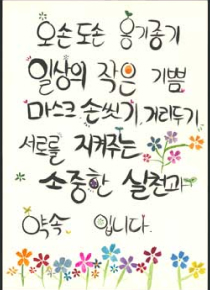 오손도손 옹기종기
일상의 작은 기쁨
마스크.손씻기.거리두기.
서로를 지켜주는
소중한 실천과
약속 입니다.